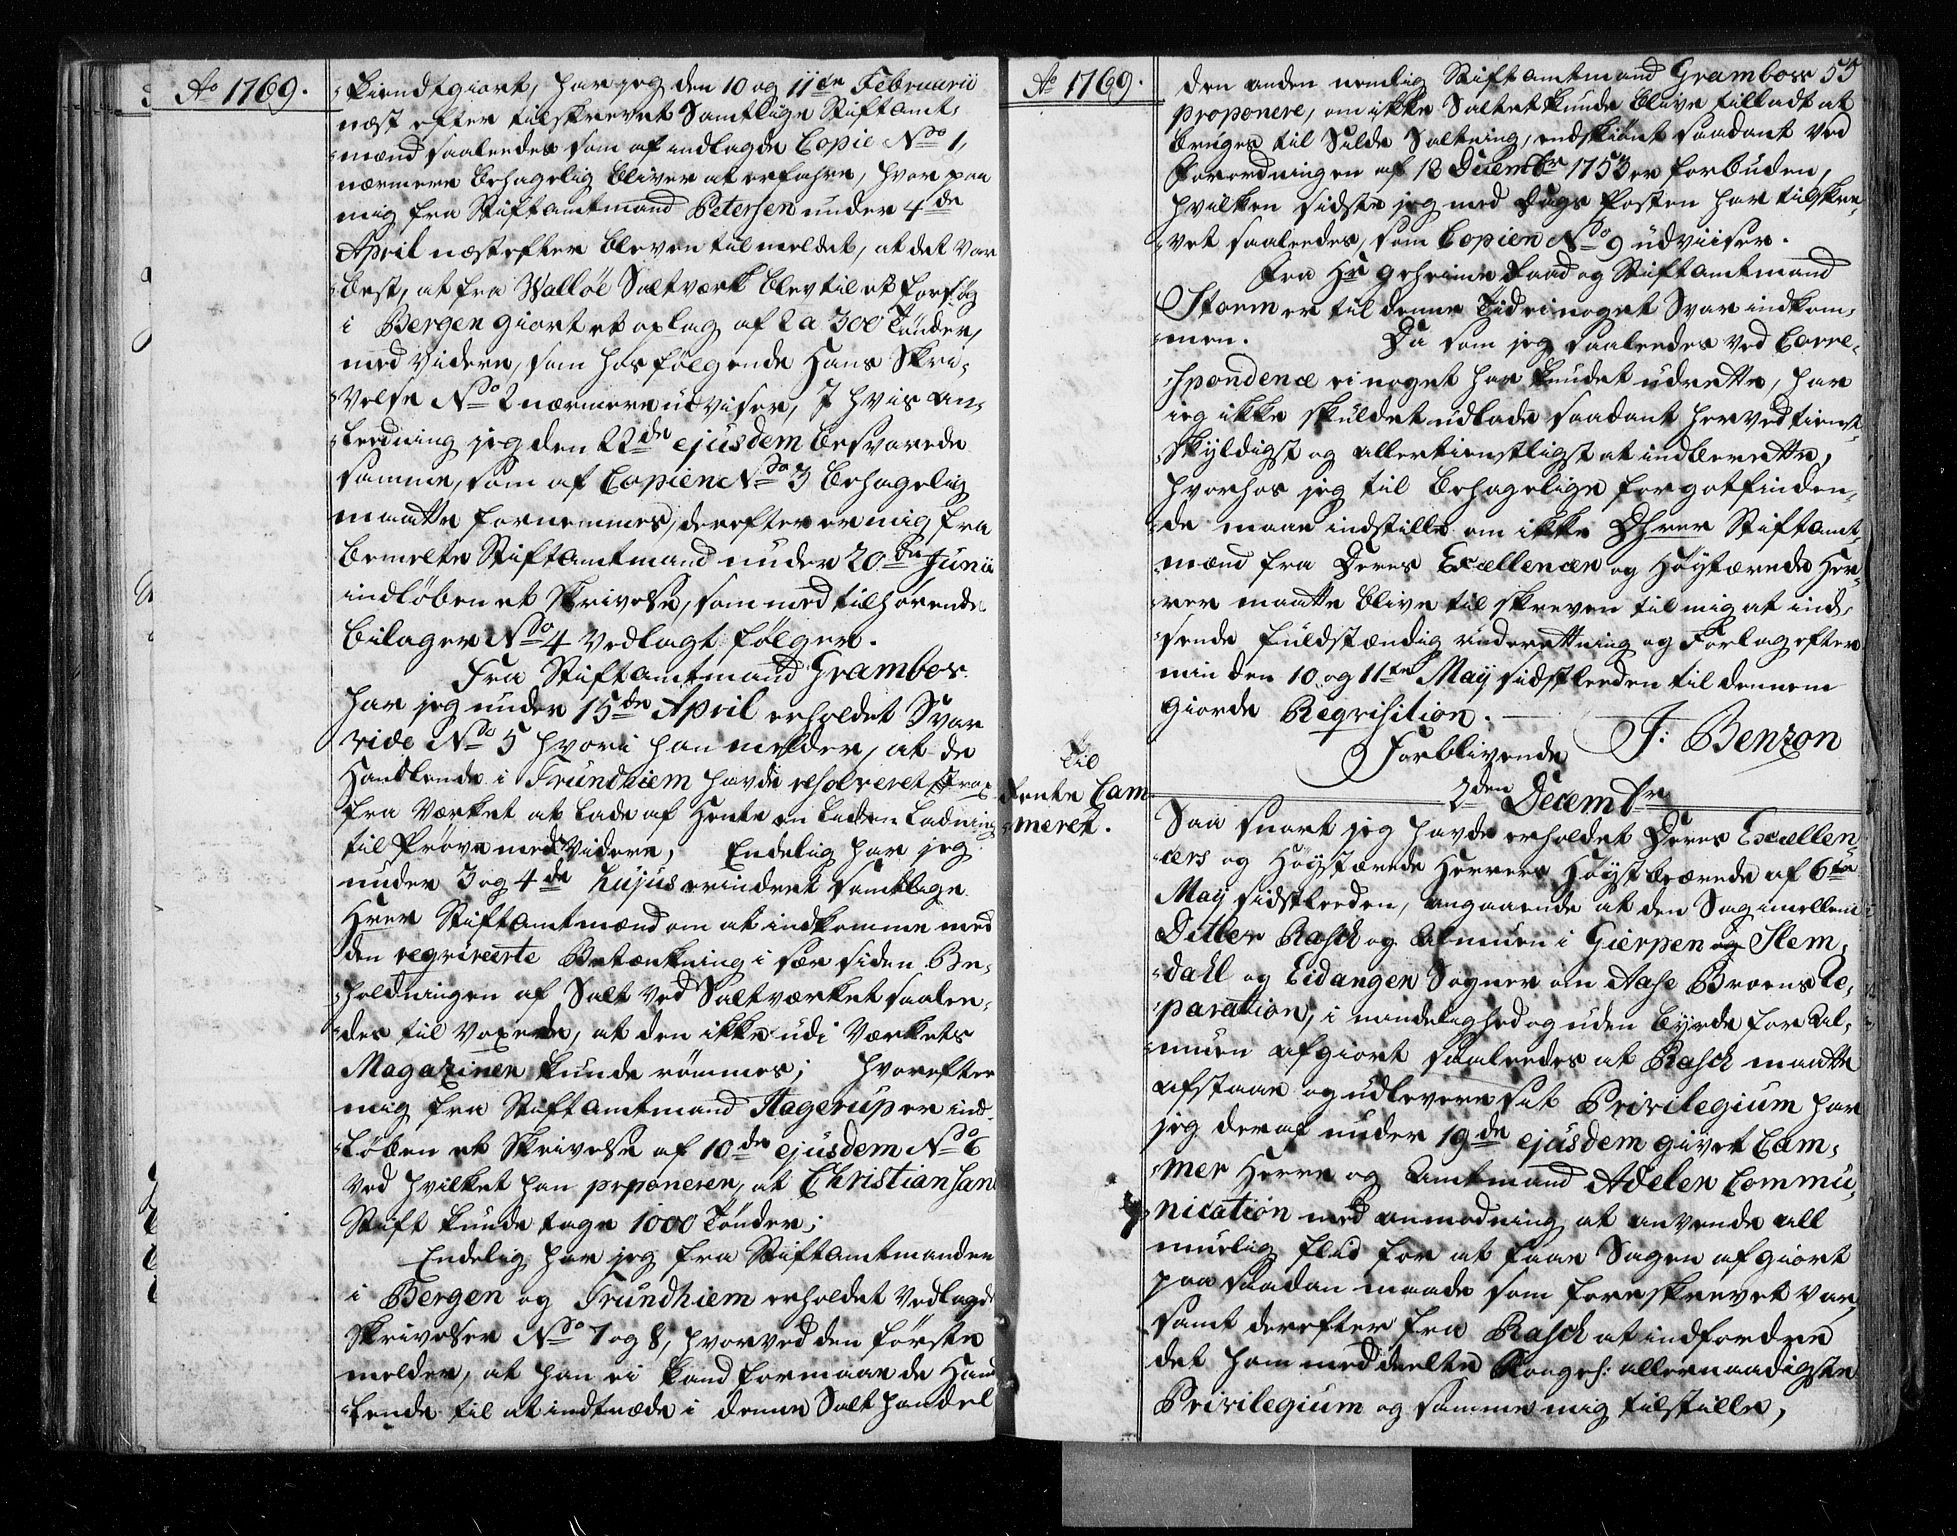 Ao 1769.
-kiendtgiort, har jeg den 10 og 11te Februarii
næst efter tilskrevet Samtlige Stiftamt-
-mænd saaledes som af indlagde Copie No 1,
nærmere behagelig bliver at erfahre, hvor paa
mig fra Stiftamtmand Petersen under 4de
April næstefter bleven tilmeldet, at det var
best, at fra Walløe Saltværk blev til et Forsøg
i Bergen giort et oplag af 2 a 300 Tønder,
med videre, som hosfølgende Hans Skri-
-velse No 2 nærmere udviser, J hvis an-
-leedning jeg den 22de ejusdem besvarede
samme, som af Copien No 3 behagelig
maatte fornemmes, derefter er mig fra
bemelte Stiftamtmand under 20de Junii
indløben et Skrivelse, som med tilhørende
bilager No 4 vedlagt følger.
Fra Stiftamtmand Grambos
har jeg under 15de April erholdet Svar
vide No 5 hvori han melder, at de
Handlende i Trundhiem havde resolveret strax
fra Værket at lade af Hente en liden Ladning
til Prøve med Videre, Endelig har jeg
under 3 og 4de hujus erindret samtlige
Hrer Stiftamtmænd om at indkomme med
den reqvireerte Betænkning i sær siden Be-
-holdningen af Salt ved Saltværket saale-
des til voxede, at den ikke udi Værkets
Magaziner kunde rømmes; hvorefter
mig fra Stiftamtmand Hagerup er ind-
-løben et Skrivelse af 10de ejusdem No 6
ved hvilket han prponerer, at Christiansand
Stift kunde tage 1000 Tønder;
Endelig har jeg fra Stiftamtmanden
i Bergen og Trundhiem erholdet vedlagde
Skrivelser No 7 og 8, hvorved den første
melder, at han ei kand formaae de Hand-
-lende til at indtræde i denne Salt handel
Ao 1769.
55
den anden nemlig Stiftamtmand Grambos
proponere, om ikke Saltet kunde blive tilladt at
bruges til Silde Saltning, endskiønt saadant ved
Forordningen af 18 Decembr 1753 er forbuden,
hvilken sidste jeg med Dags Posten har tilskre-
-vet saaledes, som Copien No 9 udviiser.
Fra Hr geheime Raad og Stiftamtmand
Storm er til denne Tid ei noget Svar indkom-
-men. Da som jeg saaledes ved Corre-
-spondence ei noget har kundet udrette, har
ieg ikke skuldet udlade saadant herved tienst-
-skyldigst og allertienstligst at indberette,
hvorhos jeg til behagelige forgotfinden-
-de maae indstille om ikke Dhrer Stiftamt-
-mænd fra Deres Excellencer og Høystærede Her-
-rer maatte blive tilskreven til mig at ind-
-sende fuldstændig underrettning og Forlag efter
min den 10 og 11te May sidstleeden til dennem
giorde Reqvisition.
Forblivende J: Benzon
2den Decembr
Til
Rente Cam
-meret.
Saa snart jeg havde erholdet Deres Excellen-
-cers og Høystærede Herrers Høystbeærede af 6te
May sidstleeden, angaaende at den Sag imellem
Ditlev Rasch og Almuen i Gierpen og Slem-
-dahl og Eidanger Sogner om Aase Broens Re-
-paration, i mindelighed og uden byrde for Al-
-muen afgiort saaleedes at Rasch maatte
afstaae og udlevere sit Privilegium har
jeg deraf under 19de ejusdem givet Cam-
-mer Herre og Amtmand Adeler Commu-
-nication med anmodning at anvende all
muelig flid for at faae Sagen afgiort
paa saadan maade som foreskrevet var,
samt derefter fra Rasch at indfordre
det ham meddeelte Kongel: allernaadigste
Privilegium og samme mig tilstille,